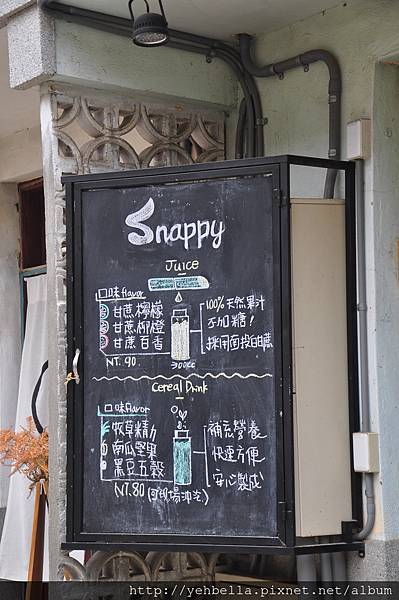 Snappy
Juice
口味flavor
甘蔗檸檬
甘蔗柳橙
甘蔗百香
NT. 90
300cc
100%天然果汁
不加糖!
採用南投白蔗
Cereal Drink
口味flavor
牧草精力
南瓜堅果
黑豆五穀
NT.80 (可現場沖泡)
補充營養
快速方便
安心製成
http://yehbella.pixnet.net/album